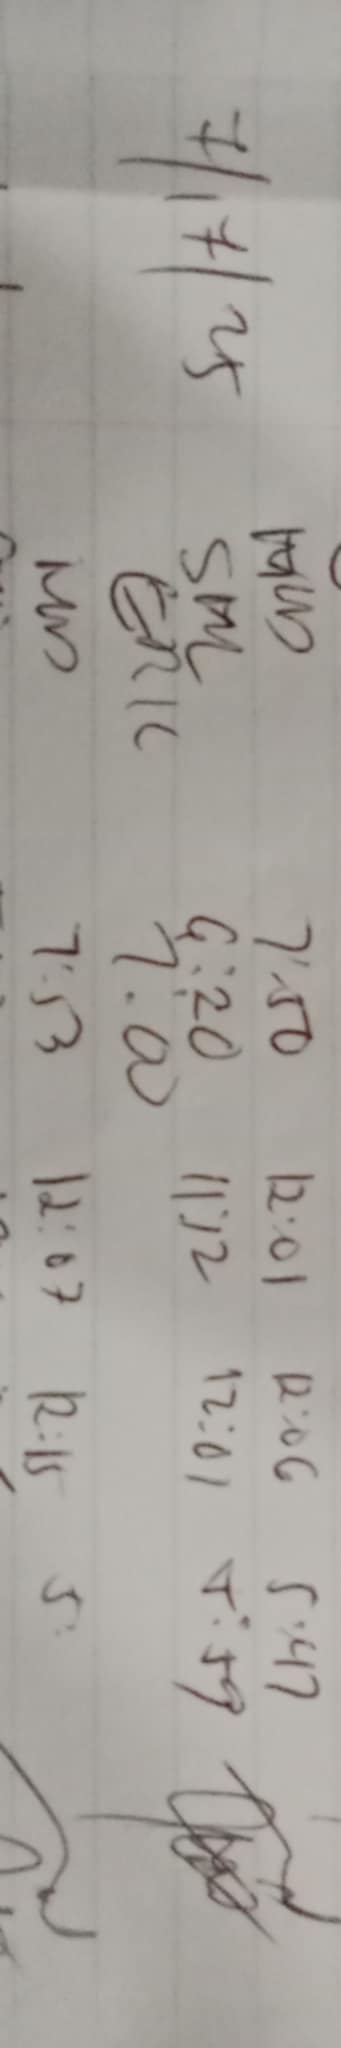 MW 7:50 12:01 12:06 5:47
7/17/25 SML 6:20 11:12 12:01 5:59
ERIC 7.00
MW 7:53 12:07 12:15 5: